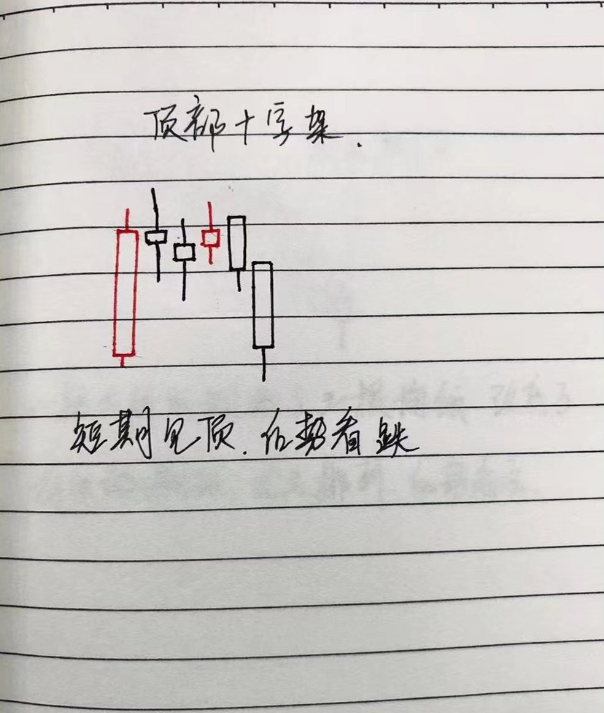 顶部十字架.
短期见顶.后势看跌